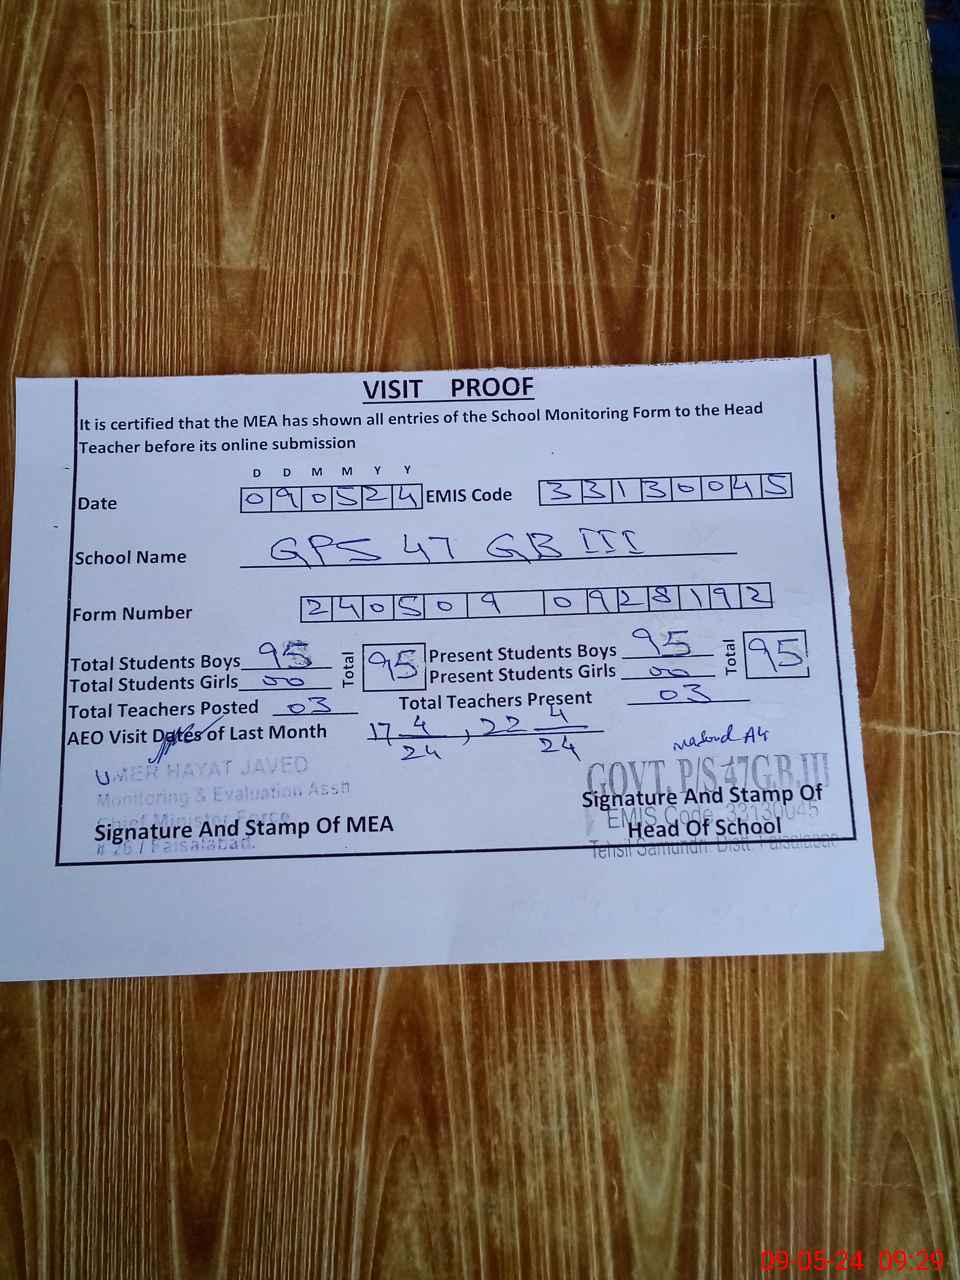 VISIT PROOF
It is certified that the MEA has shown all entries of the School Monitoring Form to the Head
Teacher before its online submission
D D M M Y Y
Date 090524 EMIS Code 33130045
School Name GPS 47 GB III
Form Number 240509 0928192
Total Students Boys 95 Total 95 Present Students Boys 95 Total 95
Total Students Girls 00 Present Students Girls 00
Total Teachers Posted 03 Total Teachers Present 03
AEO Visit Dates of Last Month 17 4/24, 22 4/24
UMER HAYAT JAVED
Monitoring & Evaluation Asstt
Chief Minister Force
# 26 / Faisalabad.
Signature And Stamp Of MEA
GOVT. P/S 47 G.B. III
EMIS Code 33130045
Tehsil Samundri Distt. Faisalabad
Signature And Stamp Of
Head Of School
09-05-24 09:29